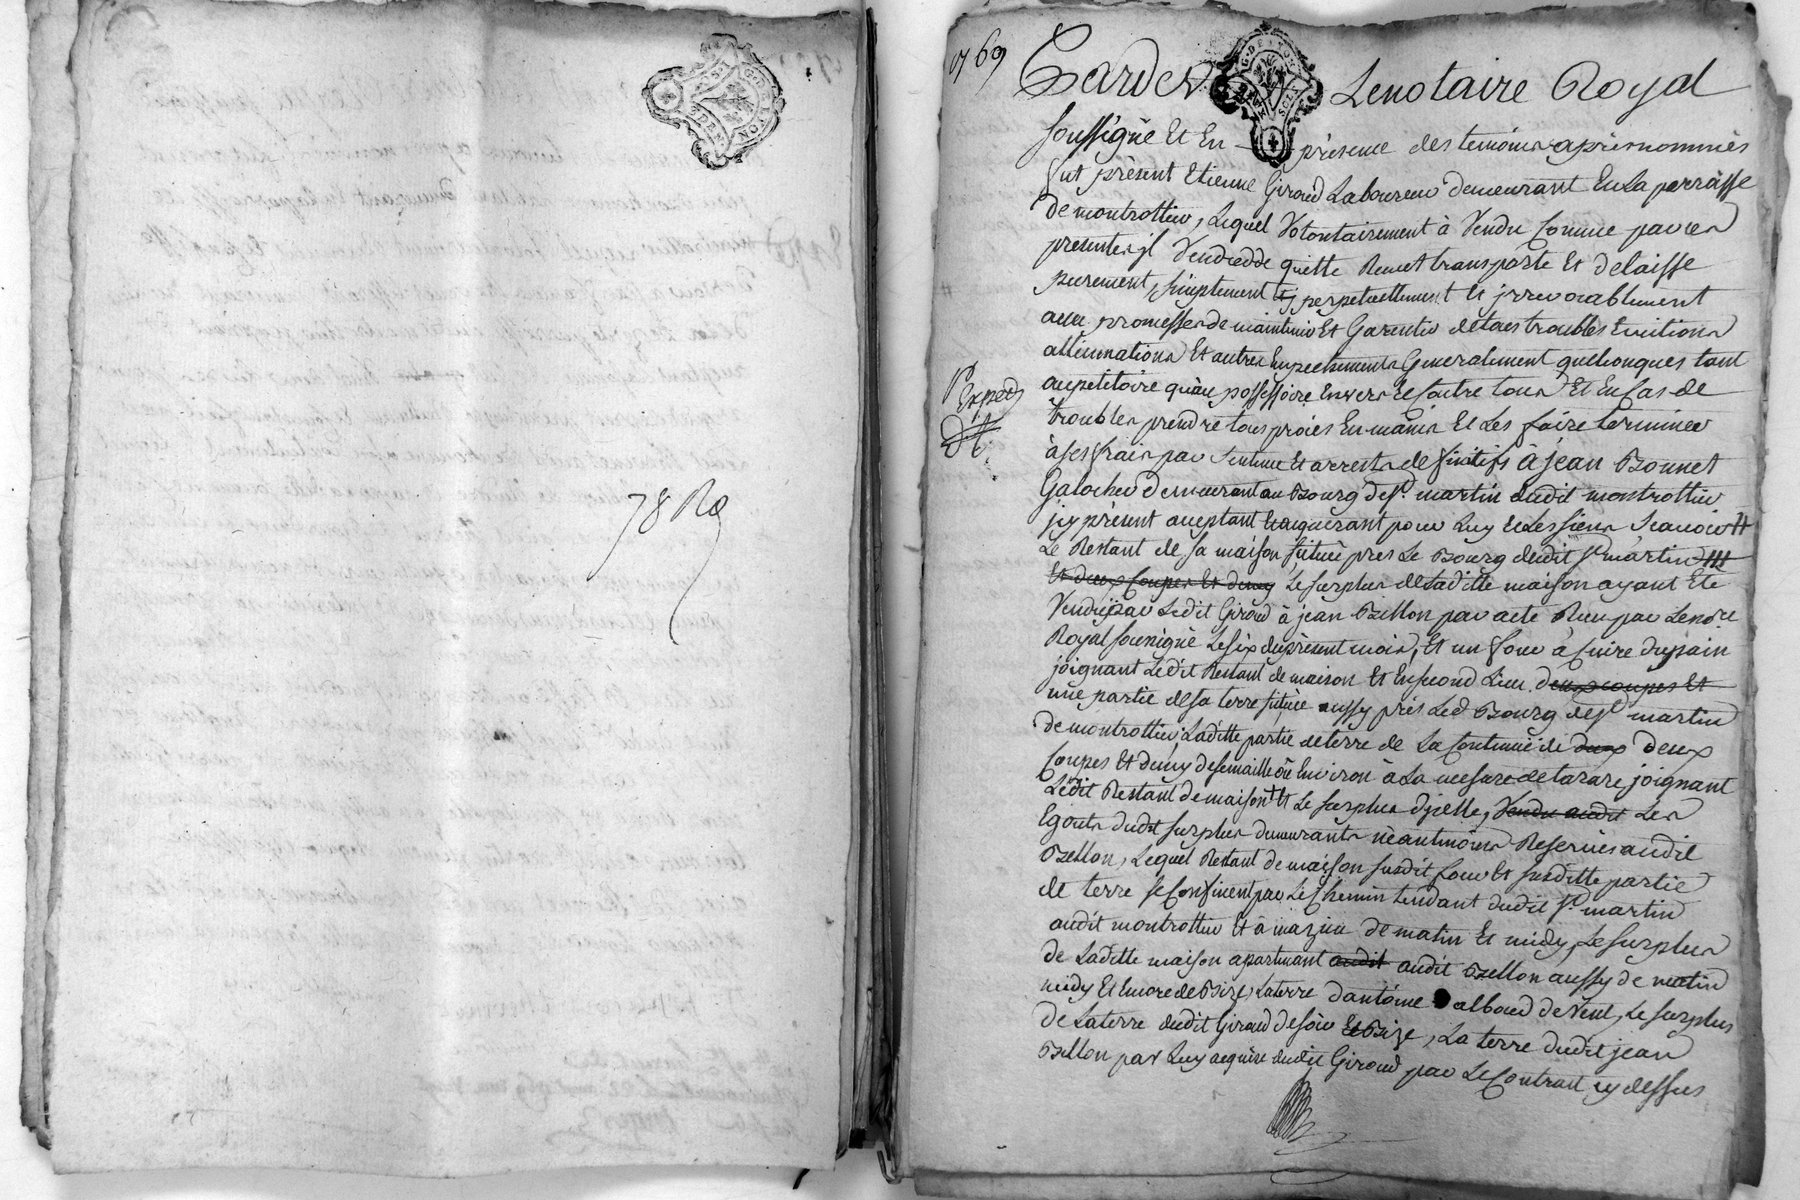 78 Ro
1769
Pardev Le notaire Royal
soussigné Et En présence des temoins aprés nommés
fut présent Etienne Giroud Laboureur demeurant En La parroisse
De montrottier, Lequel Volontairement à Vendu Comme par ces
presentes jl Vend cedde quitte Remet transporte Et delaisse
purement, simplement perpetuellement Et jrrevocablement
avec promesse de maintenir Et Garentir de tous troubles Evictions
allienations Et autres Empechements Generalement quelconques tant
au petitoire qu'au possessoire Envers Et Contre tous Et En Cas de
troubles prendre tous procés En mains Et Les faire terminer
à ses frais par Sentence Et arrests deffinitifs à jean Bonnet
Galocher demeurant au Bourg de st martin dudit montrottier
jcy présent acceptant Et acquerant pour Luy Et Les siens Scavoir
Le Restant de sa maison située pres Le Bourg dudit st martin
Et deux Coupes Et demy Le surplus de Laditte maison ayant Eté
Vendu par Ledit Giroud à jean Billon par acte Recu par Le nore
Royal soussigné Le six du présent mois, Et un four à Cuire du pain
joignant Ledit Restant de maison Et En second Lieu deux coupes Et
une partie de sa terre située aussy prés Led Bourg de st martin
de montrottier, Laditte partie de terre de La Contenue de deux deux
Coupes Et demy de semaille ou Environ à La mesure de tarare joignant
Ledit Restant de maison Et Le surplus d'jcelle, Vendu audit Les
Egouts dudit surplus demeurants néantmoins Reservés audit
Billon, Lequel Restant de maison susdit four Et susditte partie
de terre se Confinent par Le Chemin tendant dudit st martin
audit montrottier Et à de matin Et midy, Le surplus
de Laditte maison apartenant audit audit Billon aussy de matin
midy Et Encore de Bize, La terre d'antoine de Vent, Le surplus
de La terre dudit Giroud de soir Et Bize, La terre dudit jean
Billon par Luy acquise dudit Giroud par Le Contrat cy dessus
Exped